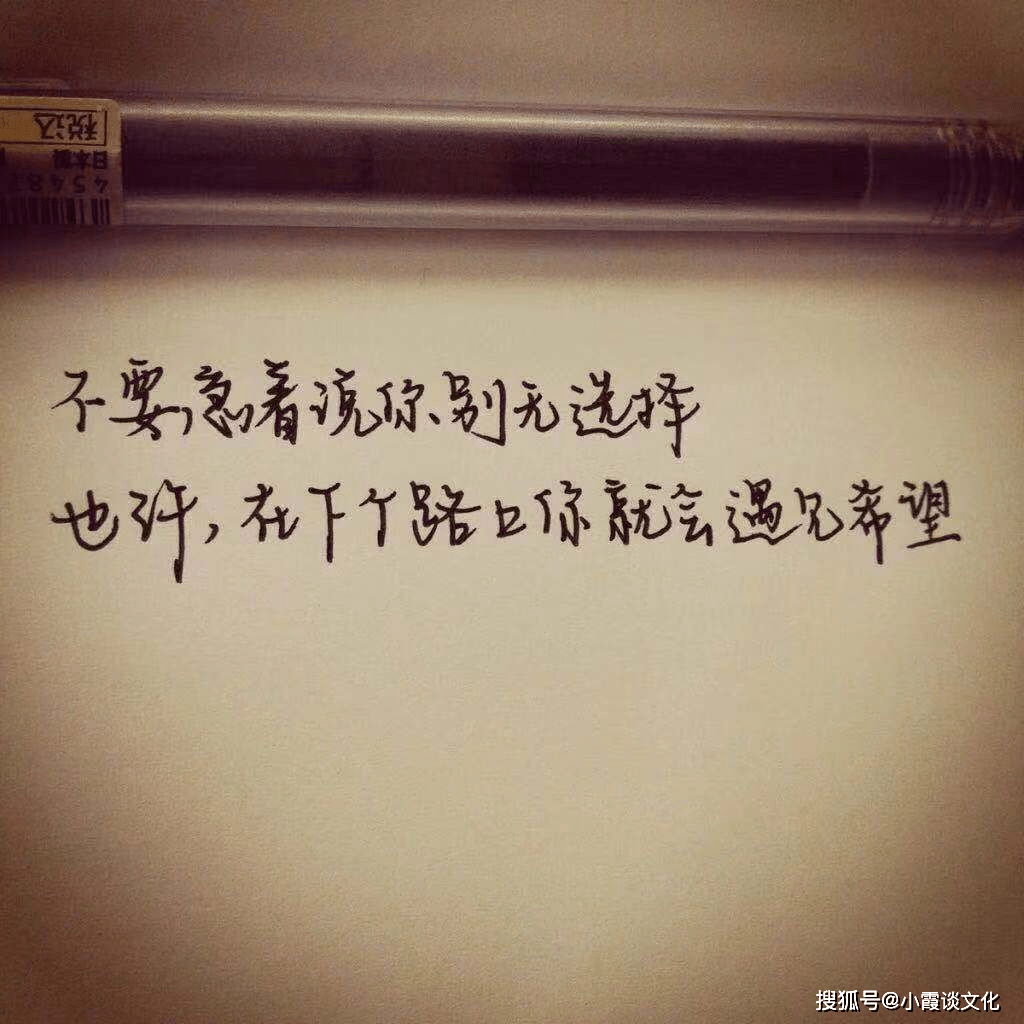 税込
日本製
4548
不要急着说你别无选择
也许，在下个路口你就会遇见希望
搜狐号@小霞谈文化